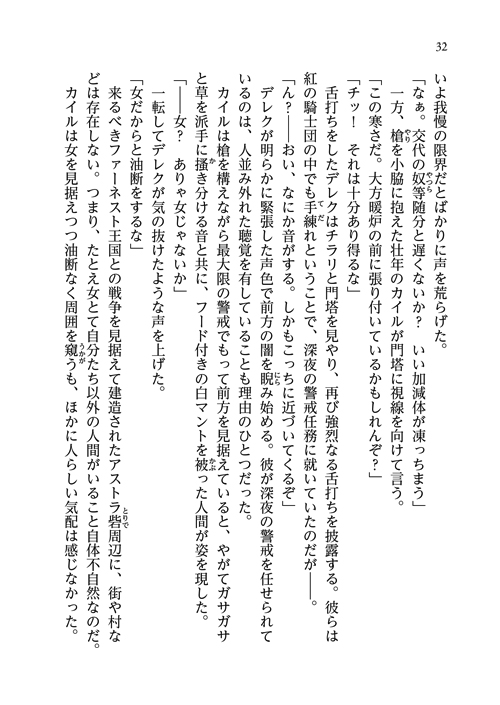 32
いよ我慢の限界だとばかりに声を荒らげた。
「なぁ。交代の奴等随分と遅くないか？　いい加減体が凍っちまう」
一方、槍を小脇に抱えた壮年のカイルが門塔に視線を向けて言う。
「この寒さだ。大方暖炉の前に張り付いているかもしれんぞ？」
「チッ！　それは十分あり得るな」
舌打ちをしたデレクはチラリと門塔を見やり、再び強烈なる舌打ちを披露する。彼らは
紅の騎士団の中でも手練れということで、深夜の警戒任務に就いていたのだが――。
「ん？――おい、なにか音がする。しかもこっちに近づいてくるぞ」
デレクが明らかに緊張した声色で前方の闇を睨み始める。彼が深夜の警戒を任せられて
いるのは、人並み外れた聴覚を有していることも理由のひとつだった。
カイルは槍を構えながら最大限の警戒でもって前方を見据えていると、やがてガサガサ
と草を派手に掻き分ける音と共に、フード付きの白マントを被った人間が姿を現した。
「――女？　ありゃ女じゃないか」
一転してデレクが気の抜けたような声を上げた。
「女だからと油断をするな」
来るべきファーネスト王国との戦争を見据えて建造されたアストラ砦周辺に、街や村な
どは存在しない。つまり、たとえ女とて自分たち以外の人間がいること自体不自然なのだ。
カイルは女を見据えつつ油断なく周囲を窺うも、ほかに人らしい気配は感じなかった。